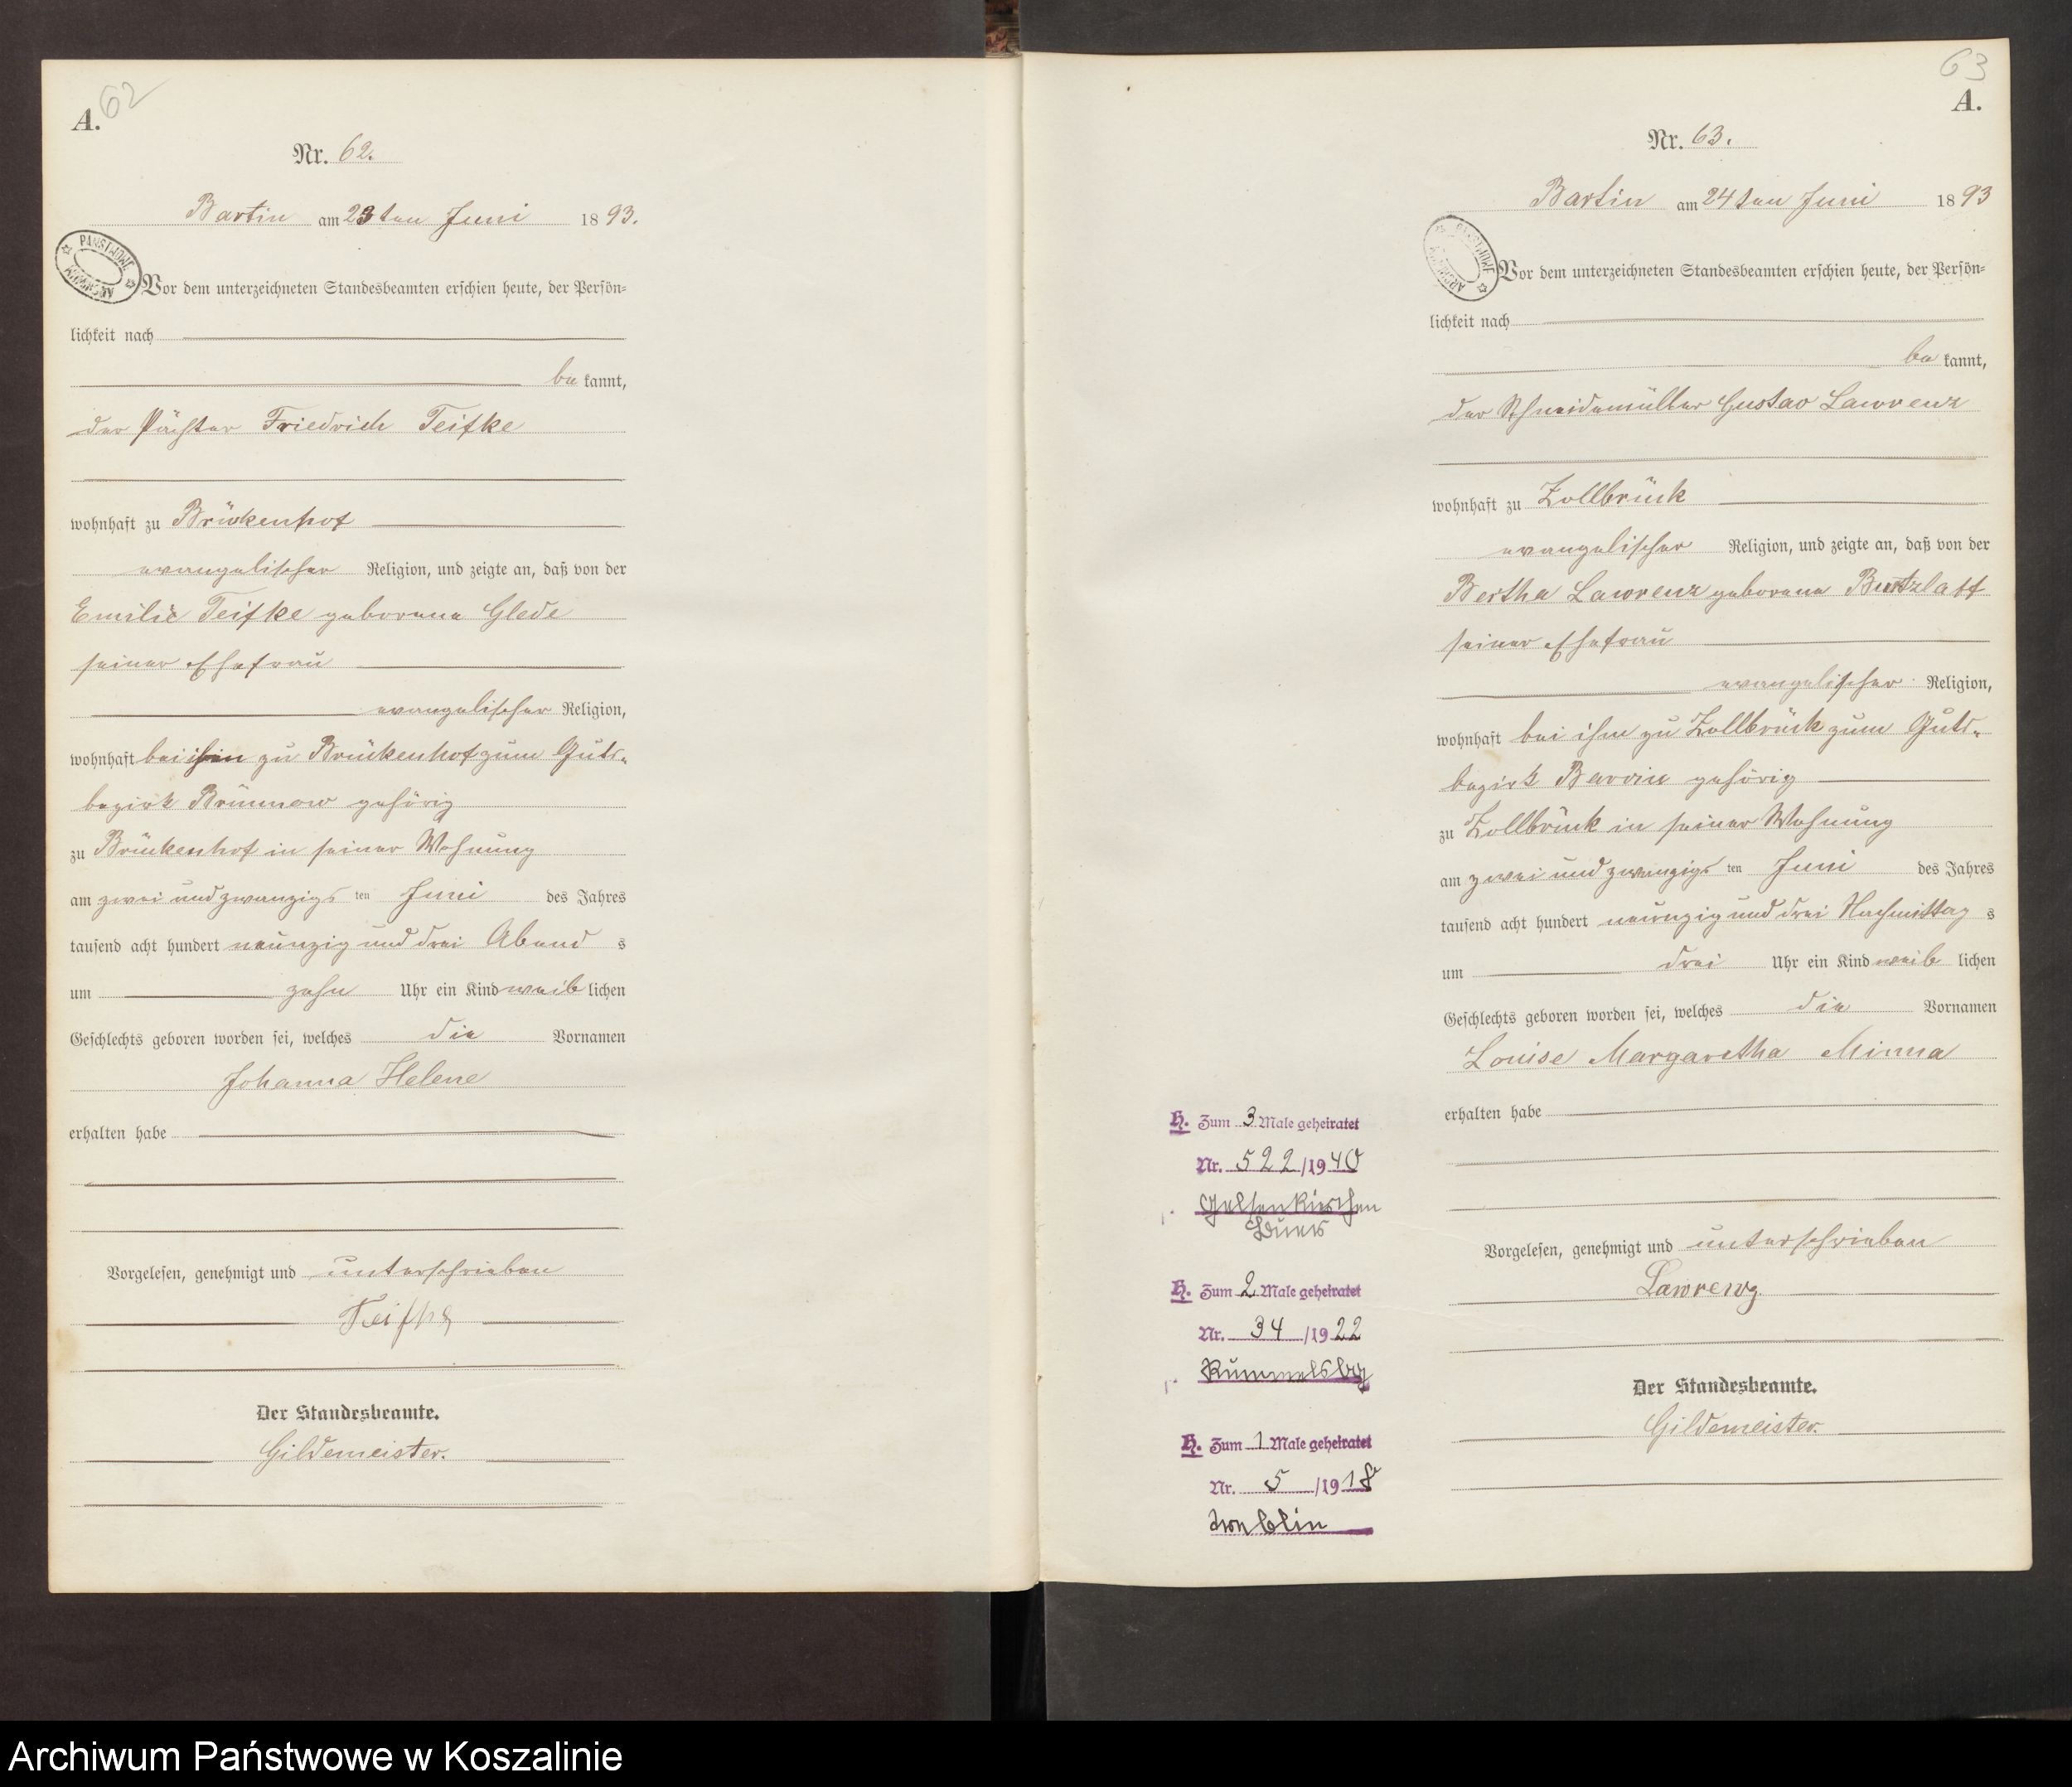 62
A.
Nr. 62.
Bartin am 23ten Juni 1893.
PAŃSTWOWE ARCHIWUM
Vor dem unterzeichneten Standesbeamten erschien heute, der Persön=
lichkeit nach
be kannt,
der Pächter Friedrich Teifke
wohnhaft zu Brückenhof
evangelischer Religion, und zeigte an, daß von der
Emilie Teifke geborene Glede
seiner Ehefrau
evangelischer Religion,
wohnhaft bei ihm zu Brückenhof zum Guts-
bezirk Brünnow gehörig
zu Brückenhof in seiner Wohnung
am zwei und zwanzigs ten Juni des Jahres
tausend acht hundert neunzig und drei Abend s
um zehn Uhr ein Kind weib lichen
Geschlechts geboren worden sei, welches die Vornamen
Johanna Helene
erhalten habe
Vorgelesen, genehmigt und unterschrieben
Teifke
Der Standesbeamte.
Gildemeister.
63
A.
Nr. 63.
Bartin am 24ten Juni 1893
PAŃSTWOWE ARCHIWUM
Vor dem unterzeichneten Standesbeamten erschien heute, der Persön=
lichkeit nach
be kannt,
der Schneidemüller Gustav Lawrenz
wohnhaft zu Zollbrück
evangelischer Religion, und zeigte an, daß von der
Bertha Lawrenz geborene Butzlaff
seiner Ehefrau
evangelischer Religion,
wohnhaft bei ihm zu Zollbrück zum Guts-
bezirk Barvin gehörig
zu Zollbrück in seiner Wohnung
am zwei und zwanzigs ten Juni des Jahres
tausend acht hundert neunzig und drei Nachmittag s
um drei Uhr ein Kind weib lichen
Geschlechts geboren worden sei, welches die Vornamen
Louise Margaretha Minna
erhalten habe
Vorgelesen, genehmigt und unterschrieben
Lawrenz
Der Standesbeamte.
Gildemeister.
H. Zum 3 Male geheiratet
Nr. 522/1940
Gelsenkirchen
Buer
H. Zum 2 Male geheiratet
Nr. 34/1922
Rummelsbg
H. Zum 1 Male geheiratet
Nr. 5/1918
Archiwum Państwowe w Koszalinie